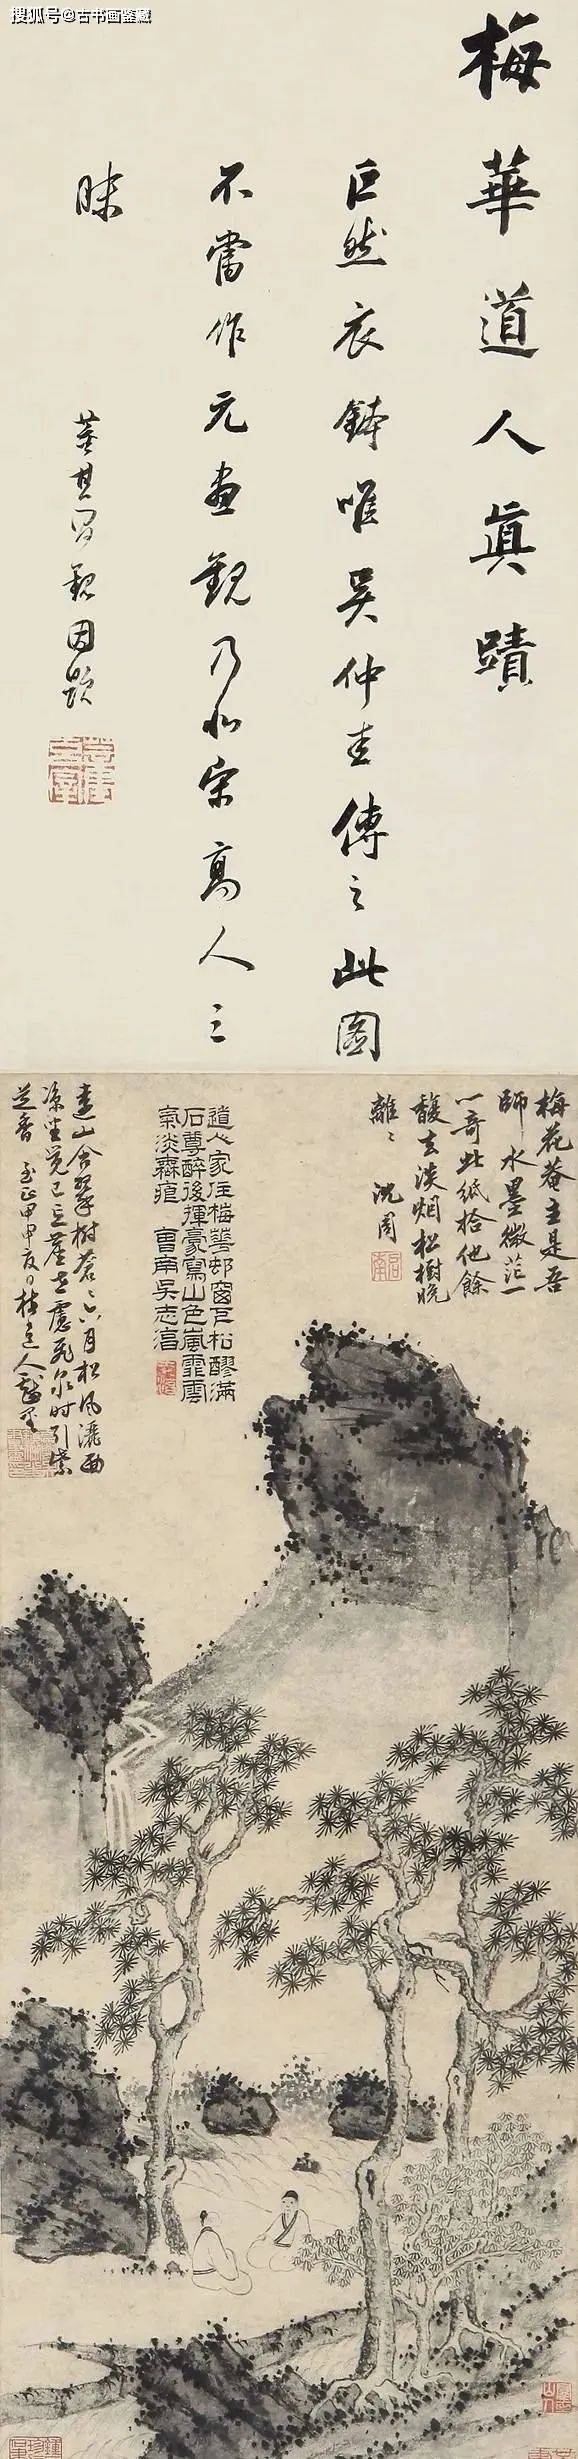 搜狐号@古书画鉴藏
梅華道人真蹟
巨然衣鉢唯吳仲圭傳之此圖
不當作元畫觀乃北宋高人三
昧
董其昌觀因題
梅花菴主是吾
師水墨微茫一
一奇此紙拾他餘
馥去淡烟松樹晚
離〻沈周
道人家住梅華邨窗下松醪滿
石尊醉後揮豪寫山色嵐霏雲
氣淡無痕 曹南吳志淳
遠山含翠樹蒼〻六月松風灑面
涼坐覺已忘塵世慮飛泉時引紫
芝香 至正甲申夏日梅道人戲墨